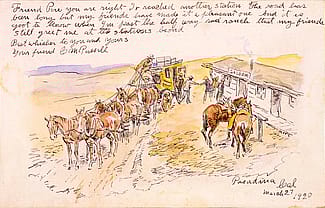 Friend Pine you are right I's reached another station the road has
been long but my friends have made it a pleasent one and it is
good to know when I'm past the half way and ranch that my friends
still greet me at the stations board
best wishes to you and yours
your friend CMRussell
Pasadena Cal
March 27 1920